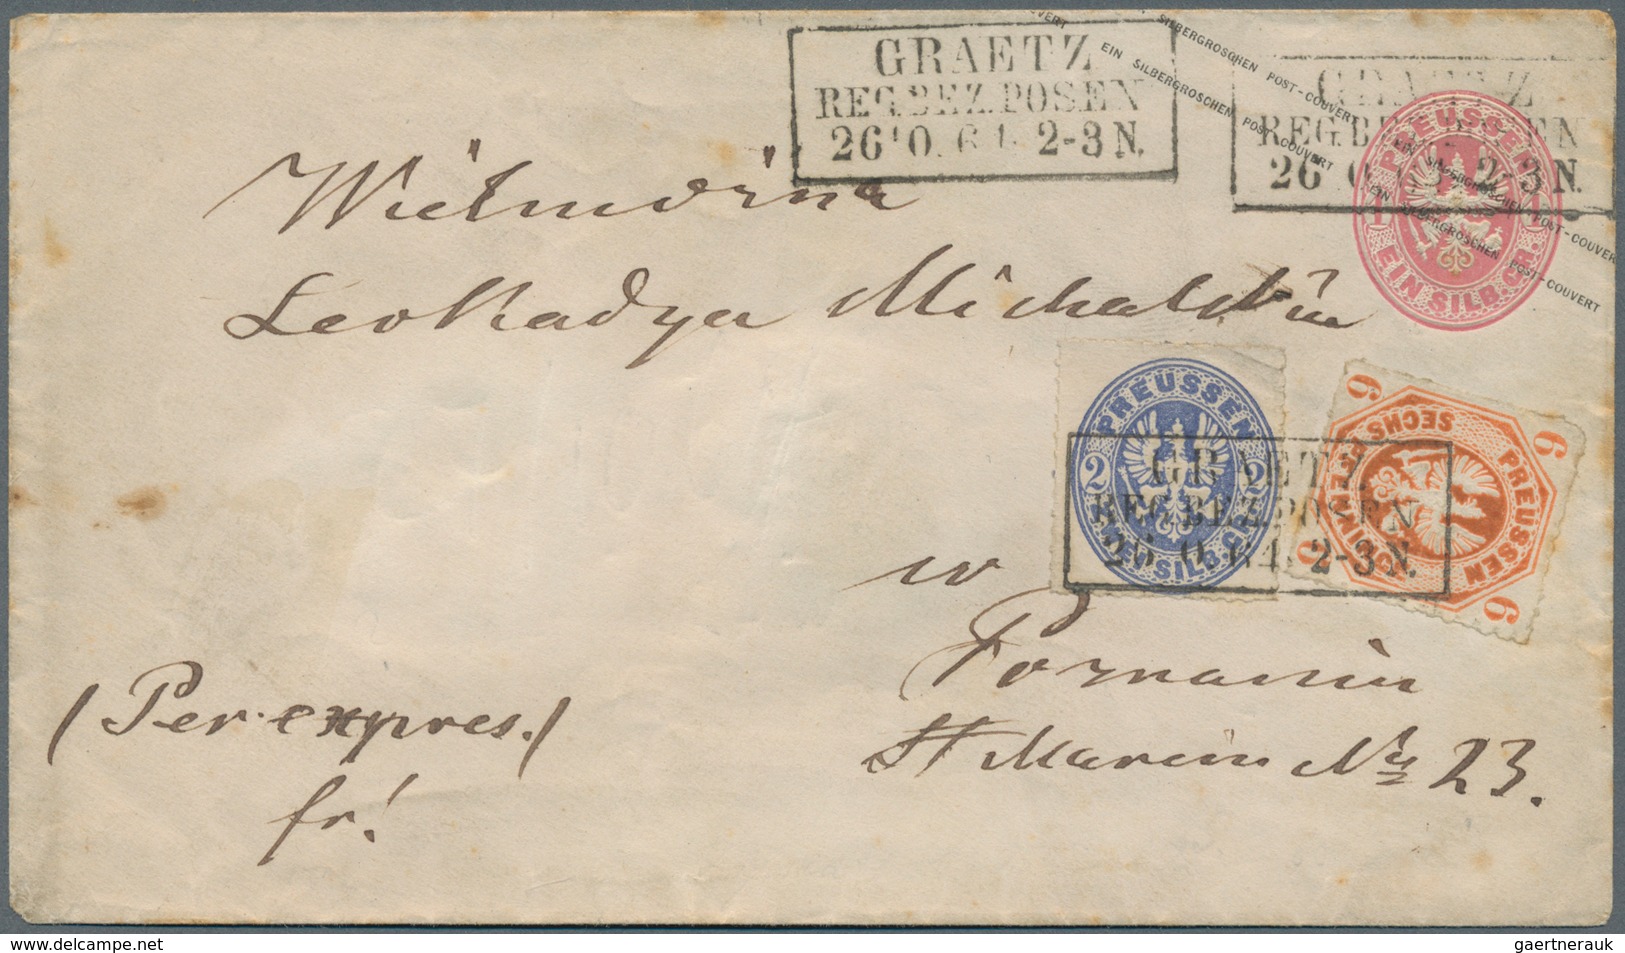 GRAETZ
REG. BEZ. POSEN
26 10. 64. 2-3 N.
GRAETZ
REG. BEZ. POSEN
26 2-3 N.
EIN SILBERGROSCHEN POST-COUVERT
EIN SILBERGROSCHEN POST-COUVERT
EIN SILBERGROSCHEN POST-COUVERT
EIN SILBERGROSCHEN POST-COUVERT
PREUSSEN
1 1
EIN SILB. GR.
Wielmożna
Leokadya Michalska
PREUSSEN
2 2
ZWEI SILB. GR.
6 6 6 6
PREUSSEN
SECHS PFENNIGE
GRAETZ.
REG. BEZ. POSEN
26 10 64. 2-3 N.
w
Poznaniu
St Marcin No 23.
/Per. expres./
fr!
www.delcampe.net
gaertnerauk